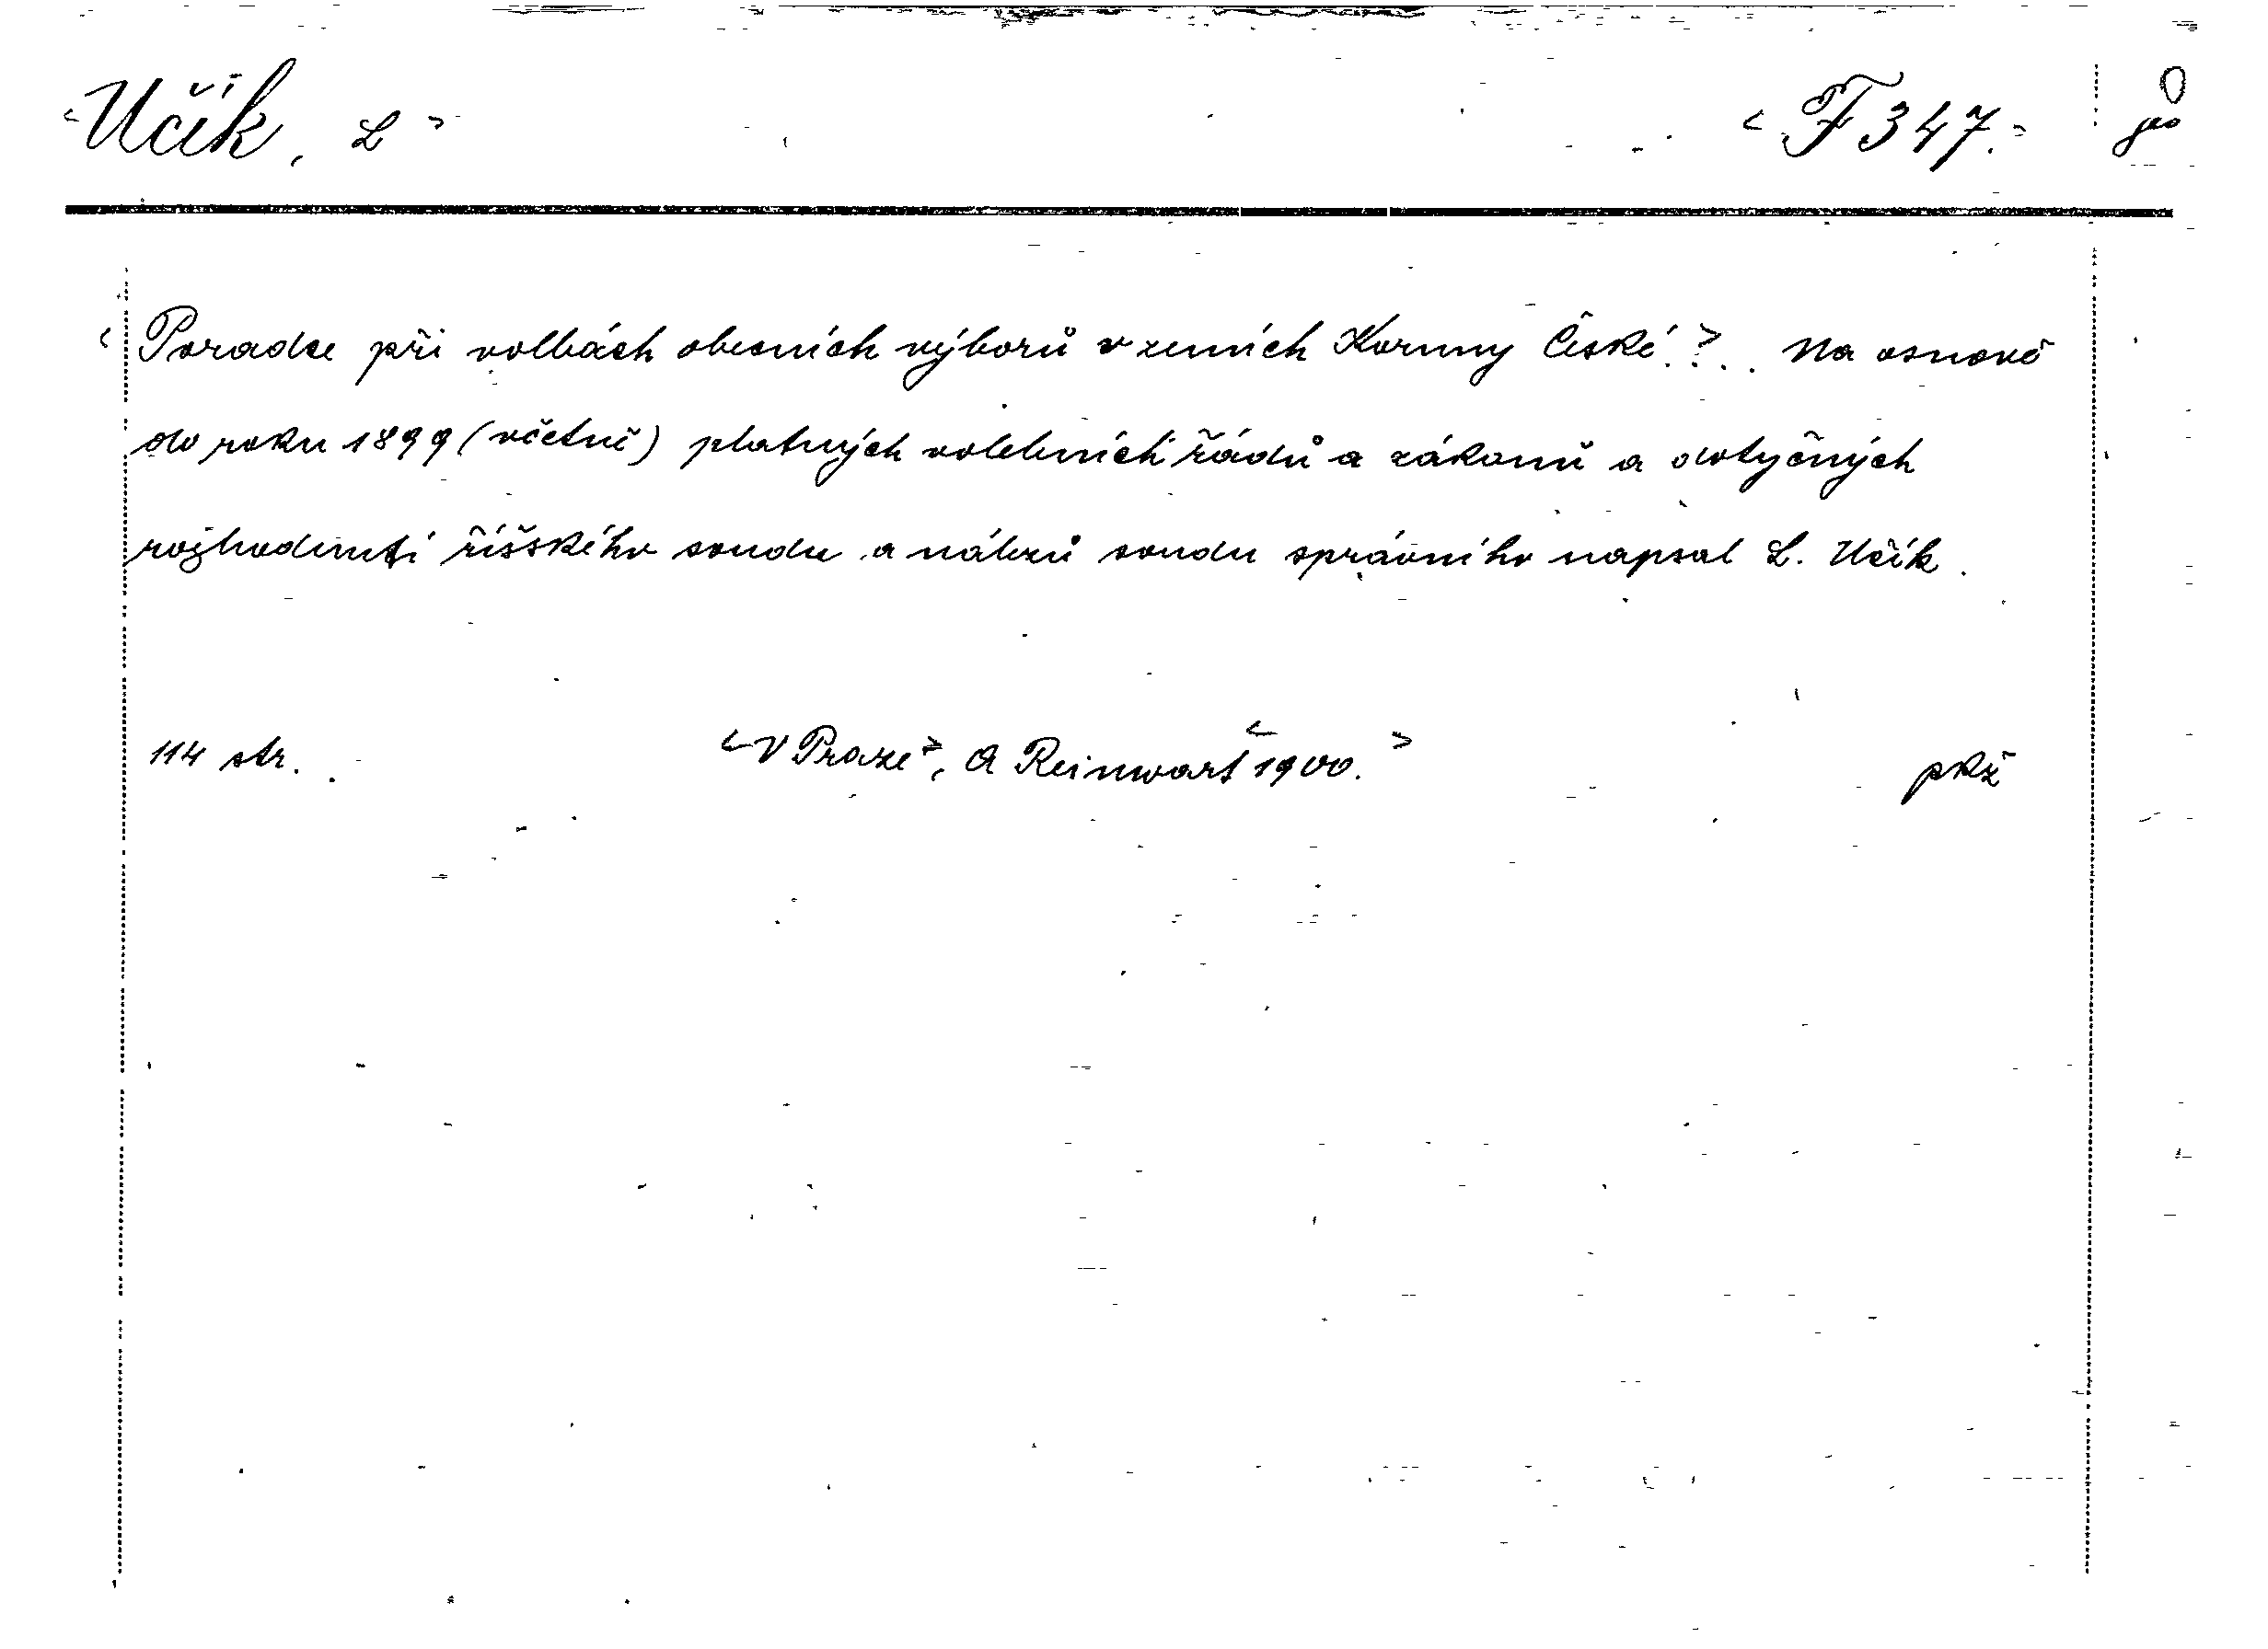 <Učík, L> <F 347.>
<Poradce při volbách obecních výborů v zemích Koruny České.>.. Na osnově
do roku 1899 (včetně) platných volebních řádů a zákonů a dotyčných
rozhodnutí říšského soudu a nálezů soudu správního napsal L. Učík.
114 str. <V Praze>, A Reinwart <1900.> pkž